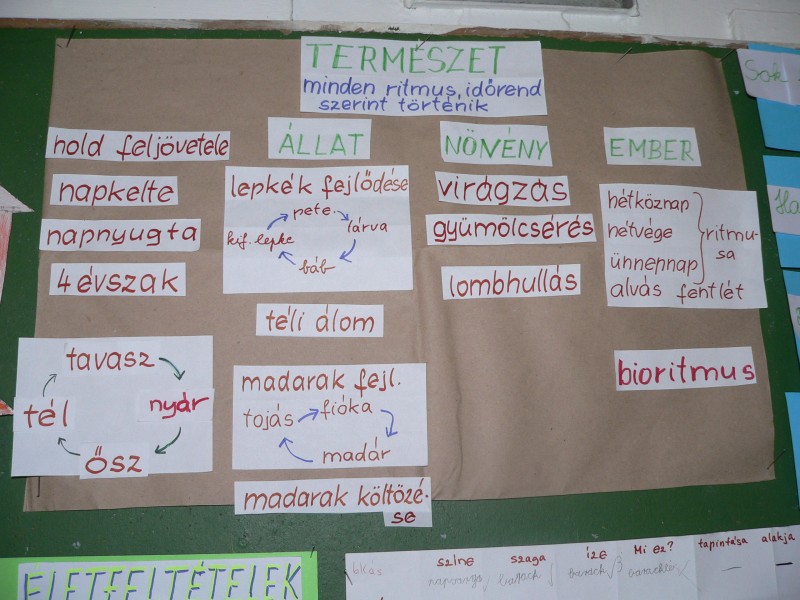 TERMÉSZET
minden ritmus, időrend
szerint történik
hold feljövetele
napkelte
napnyugta
4 évszak
tavasz
nyár
ősz
tél
ÁLLAT
lepkék fejlődése
pete
lárva
báb
kif. lepke
téli álom
madarak fejl.
tojás
fióka
madár
madarak költözé-
se
NÖVÉNY
virágzás
gyümölcsérés
lombhullás
EMBER
hétköznap
hétvége
ünnepnap
ritmu-
sa
alvás fentlét
bioritmus
Sok
Ha
ÉLETFELTÉTELEK
színe
szaga
íze
Mi ez?
tapintása
alakja
barack